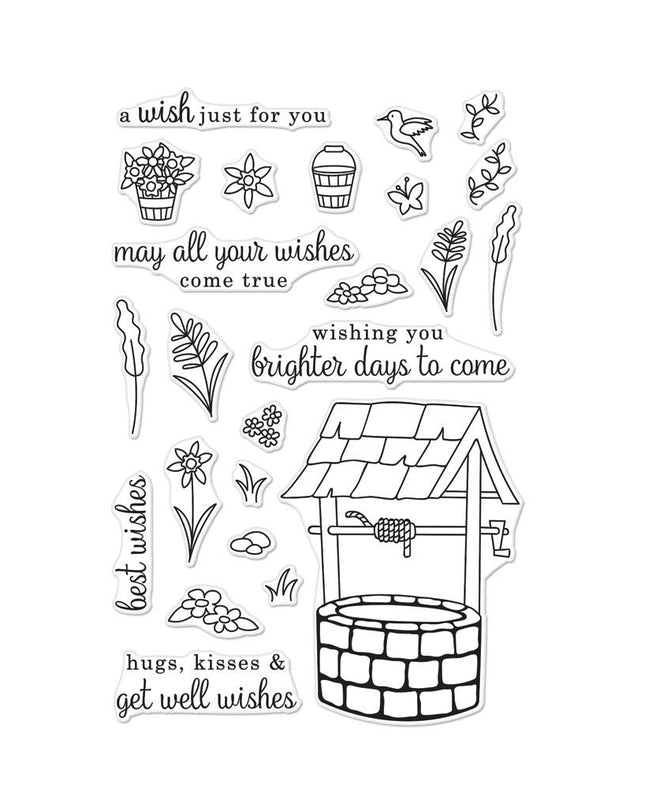 a wish just for you
may all your wishes
come true
wishing you
brighter days to come
best wishes
hugs, kisses &
get well wishes